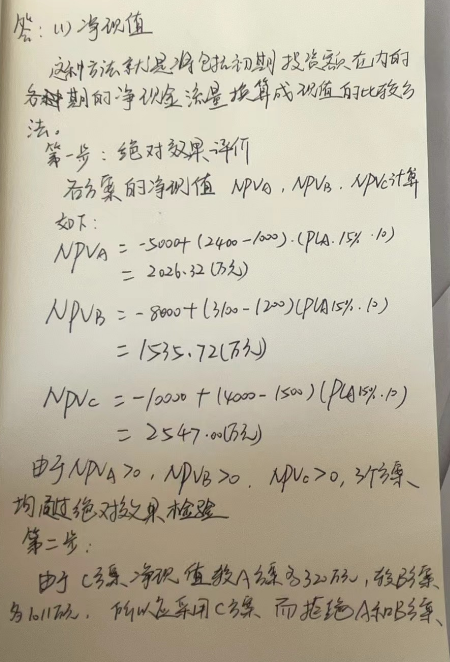 答：(1) 净现值
这种方法就是将包括初期投资额在内的
各种期的净现金流量换算成现值的比较方
法。
第一步：绝对效果评价
各方案的净现值 NPVA，NPVB．NPVC计算
如下：
NPVA = -5000+(2400-1000)·(P/A.15%.10)
= 2026.32(万元)
NPVB = -8000+(3100-1200)(P/A 15%.10)
= 1535.72(万元)
NPVC = -10000+(4000-1500)(P/A 15%.10)
= 2547.00(万元)
由于NPVA>0，NPVB>0．NPVC>0，3个方案
均通过绝对效果检验
第二步：
由于C方案净现值较A方案多520万元，较B方案
多1011万元．所以应采用C方案而拒绝A和B方案